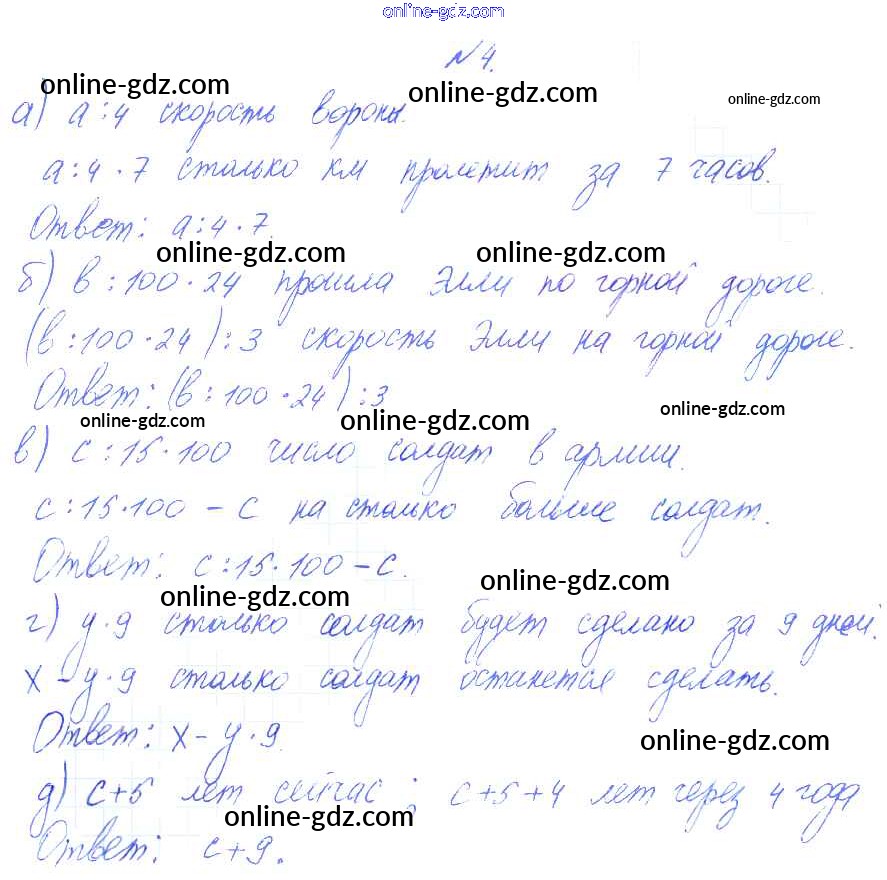 online-gdz.com
№ 4.
online-gdz.com online-gdz.com online-gdz.com
а) а:4 скорость вороны.
а:4·7 столько км пролетит за 7 часов.
Ответ: а:4·7.
online-gdz.com online-gdz.com
б) в:100·24 прошла Элли по горной дороге.
(в:100·24):3 скорость Элли на горной дороге.
Ответ: (в:100·24):3
online-gdz.com online-gdz.com online-gdz.com
в) с:15·100 число солдат в армии.
с:15·100 – с на столько больше солдат.
Ответ: с:15·100 – с.
online-gdz.com online-gdz.com
г) у·9 столько солдат будет сделано за 9 дней.
х – у·9 столько солдат останется сделать.
Ответ: х – у·9.
online-gdz.com
д) с+5 лет сейчас; с+5+4 лет через 4 года
online-gdz.com
Ответ: с+9.